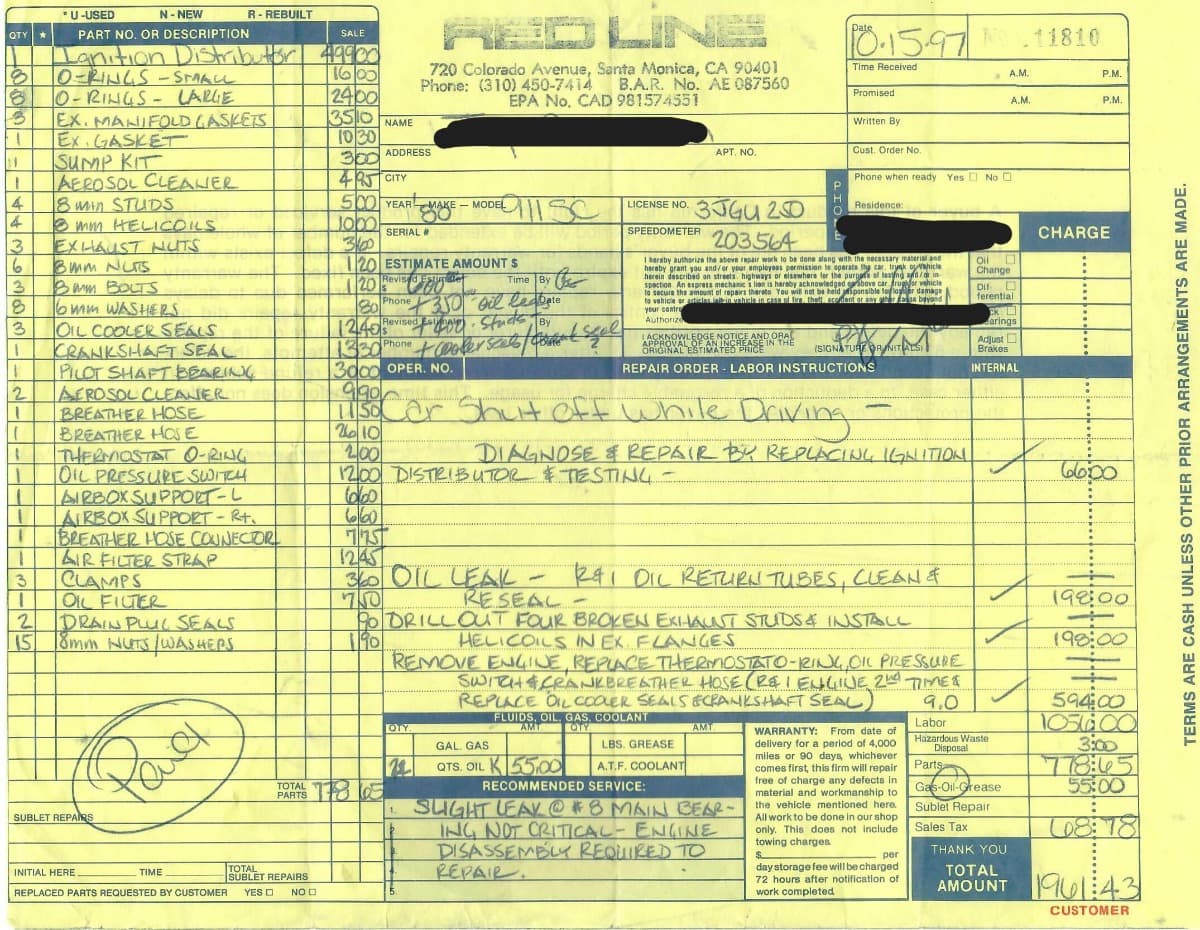 * U -USED N - NEW R - REBUILT
QTY * PART NO. OR DESCRIPTION SALE
1 Ignition Distributor 499 00
8 O-RINGS - SMALL 16 00
8 O-RINGS - LARGE 24 00
3 EX. MANIFOLD GASKETS 35 10
1 EX. GASKET 10 30
11 SUMP KIT 3 00
1 AEROSOL CLEANER 4 95
4 8 mm STUDS 5 00
4 8 mm HELICOILS 10 00
3 EXHAUST NUTS 3 60
6 8mm NUTS 1 20
3 8mm BOLTS 1 20
8 6mm WASHERS 80
3 OIL COOLER SEALS 12 40
1 CRANKSHAFT SEAL 13 30
1 PILOT SHAFT BEARING 30 00
2 AEROSOL CLEANER 9 90
1 BREATHER HOSE 11 50
1 BREATHER HOSE 26 10
1 THERMOSTAT O-RING 2 00
1 OIL PRESSURE SWITCH 12 00
1 AIRBOX SUPPORT - L 6 60
1 AIRBOX SUPPORT - Rt. 6 60
1 BREATHER HOSE CONNECTOR 7 75
1 AIR FILTER STRAP 12 45
3 CLAMPS 3 60
1 OIL FILTER 7 50
2 DRAIN PLUG SEALS 90
15 8mm NUTS/WASHERS 1 90
Paid
TOTAL PARTS 778 65
SUBLET REPAIRS
INITIAL HERE TIME TOTAL SUBLET REPAIRS
REPLACED PARTS REQUESTED BY CUSTOMER YES NO
RED LINE
720 Colorado Avenue, Santa Monica, CA 90401
Phone: (310) 450-7414 B.A.R. No. AE 087560
EPA No. CAD 981574551
Date 10.15.97
11810
Time Received A.M. P.M.
Promised A.M. P.M.
Written By
Cust. Order No.
Phone when ready Yes No
PHONE
Residence:
NAME
ADDRESS APT. NO.
CITY
YEAR — MAKE — MODEL '80 911SC
LICENSE NO. 3JGU250
SERIAL #
SPEEDOMETER 203564
CHARGE
ESTIMATE AMOUNT $
Revised Estimate 600 Time By
Phone + 350 - oil leak Date
Revised Estimate + 400 - studs By
Phone + cooler seals / crank seal ?
I hereby authorize the above repair work to be done along with the necessary material and
hereby grant you and/or your employees permission to operate the car, truck or vehicle
herein described on streets, highways or elsewhere for the purpose of testing and/or in-
spection. An express mechanic's lien is hereby acknowledged on above car, truck or vehicle
to secure the amount of repairs thereto. You will not be held responsible for loss or damage
to vehicle or articles left in vehicle in case of fire, theft, accident or any other cause beyond
your contr
Authorize
I ACKNOWLEDGE NOTICE AND ORAL
APPROVAL OF AN INCREASE IN THE
ORIGINAL ESTIMATED PRICE
(SIGNATURE OR INITIALS)
Oil Change
Dif-ferential
earings
Adjust Brakes
OPER. NO. REPAIR ORDER - LABOR INSTRUCTIONS INTERNAL
Car Shut off While Driving -
DIAGNOSE & REPAIR BY REPLACING IGNITION
DISTRIBUTOR & TESTING - 66:00
OIL LEAK - R&I OIL RETURN TUBES, CLEAN &
RESEAL - 198:00
DRILL OUT FOUR BROKEN EXHAUST STUDS & INSTALL
HELICOILS IN EX. FLANGES 198:00
REMOVE ENGINE, REPLACE THERMOSTAT O-RING, OIL PRESSURE
SWITCH & CRANKBREATHER HOSE (R&I ENGINE 2nd TIME &
REPLACE OIL COOLER SEALS & CRANKSHAFT SEAL) 9.0 594:00
FLUIDS, OIL, GAS, COOLANT
QTY. AMT. QTY. AMT.
GAL. GAS LBS. GREASE
QTS. OIL K 55.00 A.T.F. COOLANT
RECOMMENDED SERVICE:
1. SLIGHT LEAK @ #8 MAIN BEAR-
2. ING NOT CRITICAL - ENGINE
3. DISASSEMBLY REQUIRED TO
4. REPAIR.
5.
WARRANTY: From date of
delivery for a period of 4,000
miles or 90 days, whichever
comes first, this firm will repair
free of charge any defects in
material and workmanship to
the vehicle mentioned here.
All work to be done in our shop
only. This does not include
towing charges.
$ per
day storage fee will be charged
72 hours after notification of
work completed.
Labor 1056:00
Hazardous Waste Disposal 3:00
Parts 778:65
Gas-Oil-Grease 55:00
Sublet Repair
Sales Tax 68:78
THANK YOU
TOTAL AMOUNT 1961:43
CUSTOMER
TERMS ARE CASH UNLESS OTHER PRIOR ARRANGEMENTS ARE MADE.